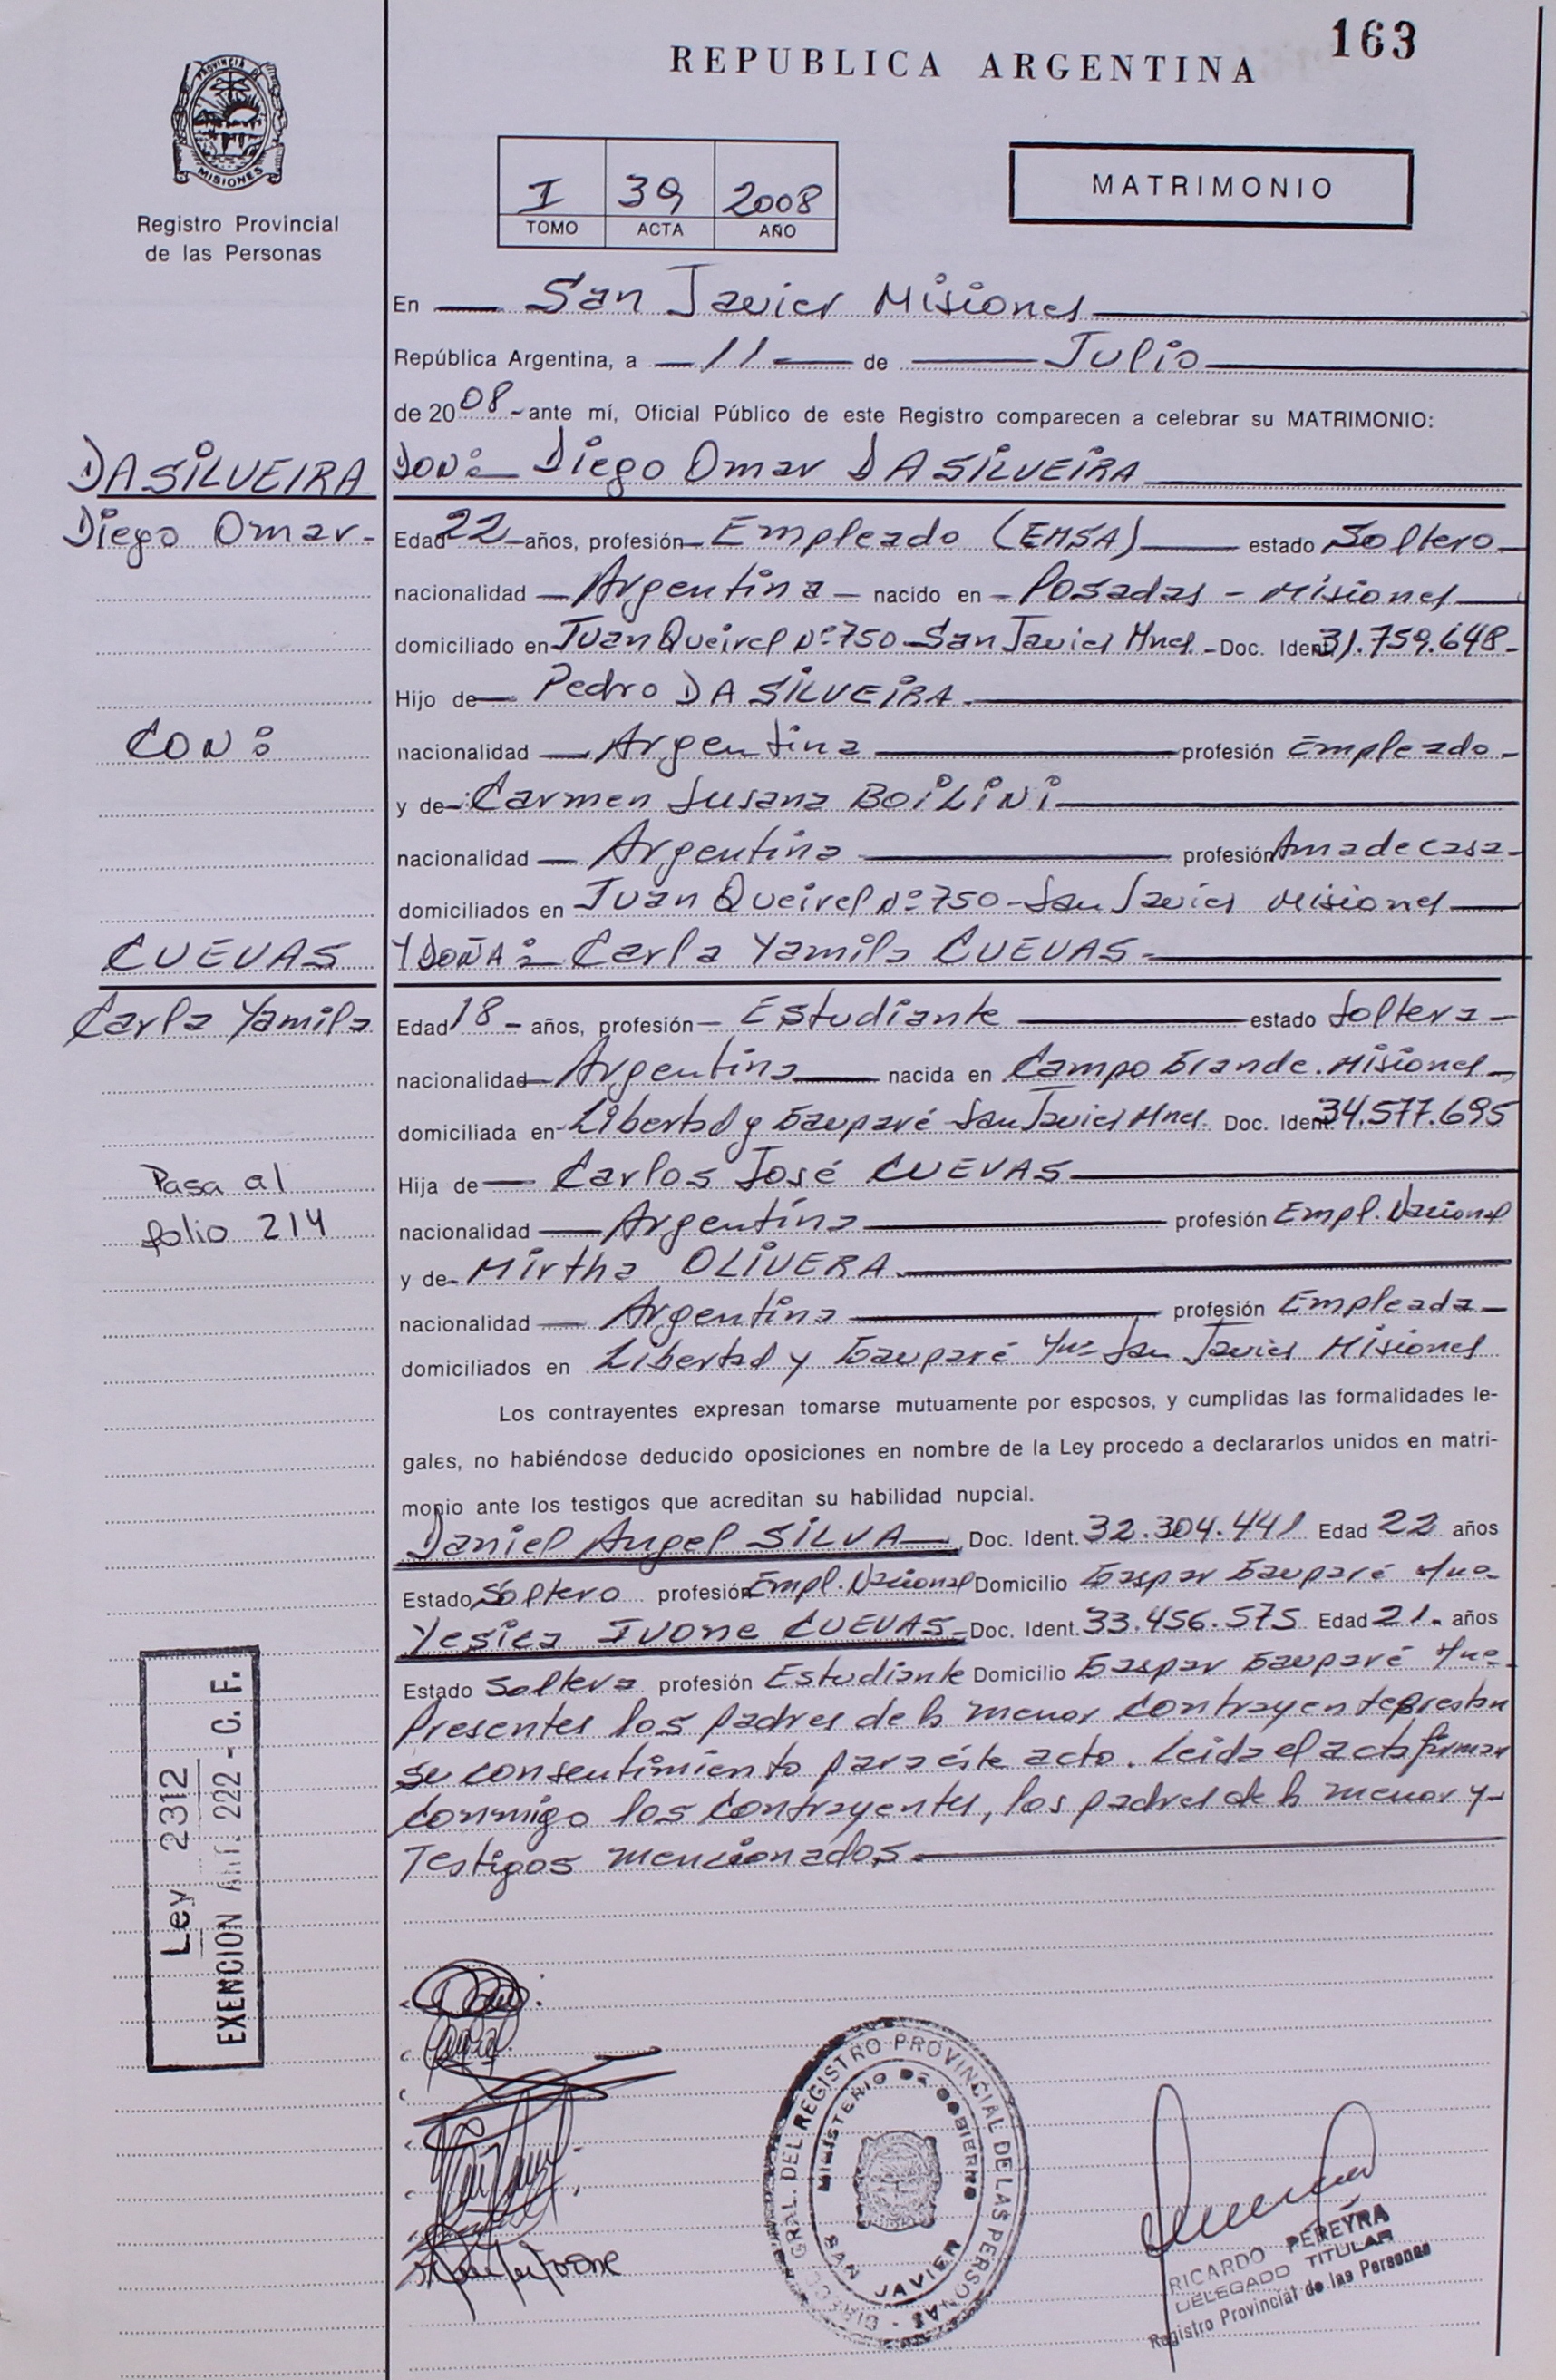 163
REPUBLICA ARGENTINA
PROVINCIA DE
MISIONES
Registro Provincial
de las Personas
I 39 2008
TOMO ACTA AÑO
MATRIMONIO
En San Javier Misiones
República Argentina, a 11 de Julio
de 2008 ante mí, Oficial Público de este Registro comparecen a celebrar su MATRIMONIO:
DA SILVEIRA
DON: Diego Omar DA SILVEIRA
Diego Omar-
Edad 22 años, profesión Empleado (EMSA) estado Soltero
nacionalidad Argentina nacido en Posadas - Misiones
domiciliado en Juan Queirel Nº 750 San Javier Mnes. Doc. Ident. 31.759.648
Hijo de Pedro DA SILVEIRA
CON:
nacionalidad Argentina profesión Empleado
y de Carmen Susana BOiLiNi
nacionalidad Argentina profesión Ama de casa
domiciliados en Juan Queirel Nº 750 - San Javier Misiones
CUEVAS
Y DOÑA: Carla Yamila CUEVAS
Carla Yamila
Edad 18 años, profesión Estudiante estado Soltera
nacionalidad Argentina nacida en Campo Grande. Misiones
domiciliada en Libertad y Guaparé San Javier Mnes. Doc. Ident. 34.577.695
Hija de Carlos José CUEVAS
Pasa al
folio 214
nacionalidad Argentina profesión Empl. Nacional
y de Mirtha OLIVERA
nacionalidad Argentina profesión Empleada
domiciliados en Libertad y San Javier Misiones
Los contrayentes expresan tomarse mutuamente por esposos, y cumplidas las formalidades le-
gales, no habiéndose deducido oposiciones en nombre de la Ley procedo a declararlos unidos en matri-
monio ante los testigos que acreditan su habilidad nupcial.
Daniel Angel SILVA Doc. Ident. 32.304.441 Edad 22 años
Estado Soltero profesión Empl. Nacional Domicilio Gaspar
Yesica Ivone CUEVAS Doc. Ident. 33.456.575 Edad 21 años
Estado Soltera profesión Estudiante Domicilio Gaspar
Presentes los padres de la menor contrayente prestan
su consentimiento para éste acto. Leida el acta firman
conmigo los contrayentes, los padres de la menor y
Testigos mencionados.
Ley 2312
EXENCION Art. 222 - C. F.
DIRECC. GRAL. DEL REGISTRO PROVINCIAL DE LAS PERSONAS
MINISTERIO DE GOBIERNO
SAN JAVIER
RICARDO PEREYRA
DELEGADO TITULAR
Registro Provincial de las Personas